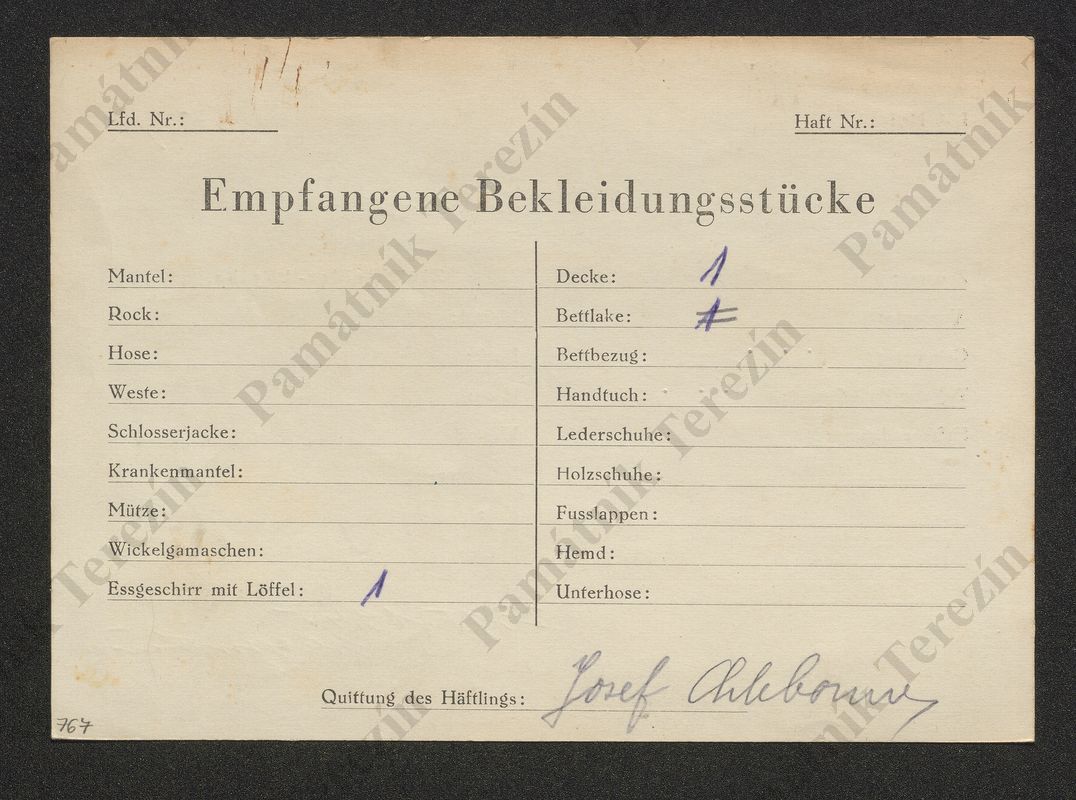 Lfd. Nr.:
Haft Nr.:
Empfangene Bekleidungsstücke
Mantel:
Rock:
Hose:
Weste:
Schlosserjacke:
Krankenmantel:
Mütze:
Wickelgamaschen:
Essgeschirr mit Löffel: 1
Decke: 1
Bettlake: 1
Bettbezug:
Handtuch:
Lederschuhe:
Holzschuhe:
Fusslappen:
Hemd:
Unterhose:
Quittung des Häftlings: Josef
767
Památník Terezín